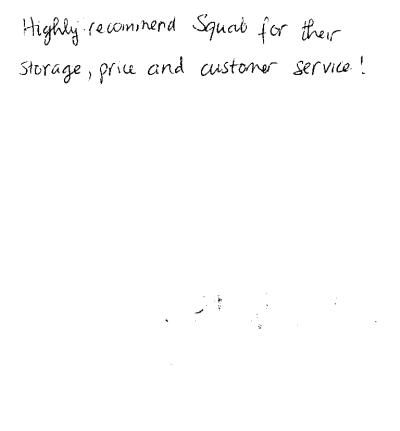 Highly recommend Squab for their
storage, price and customer service!